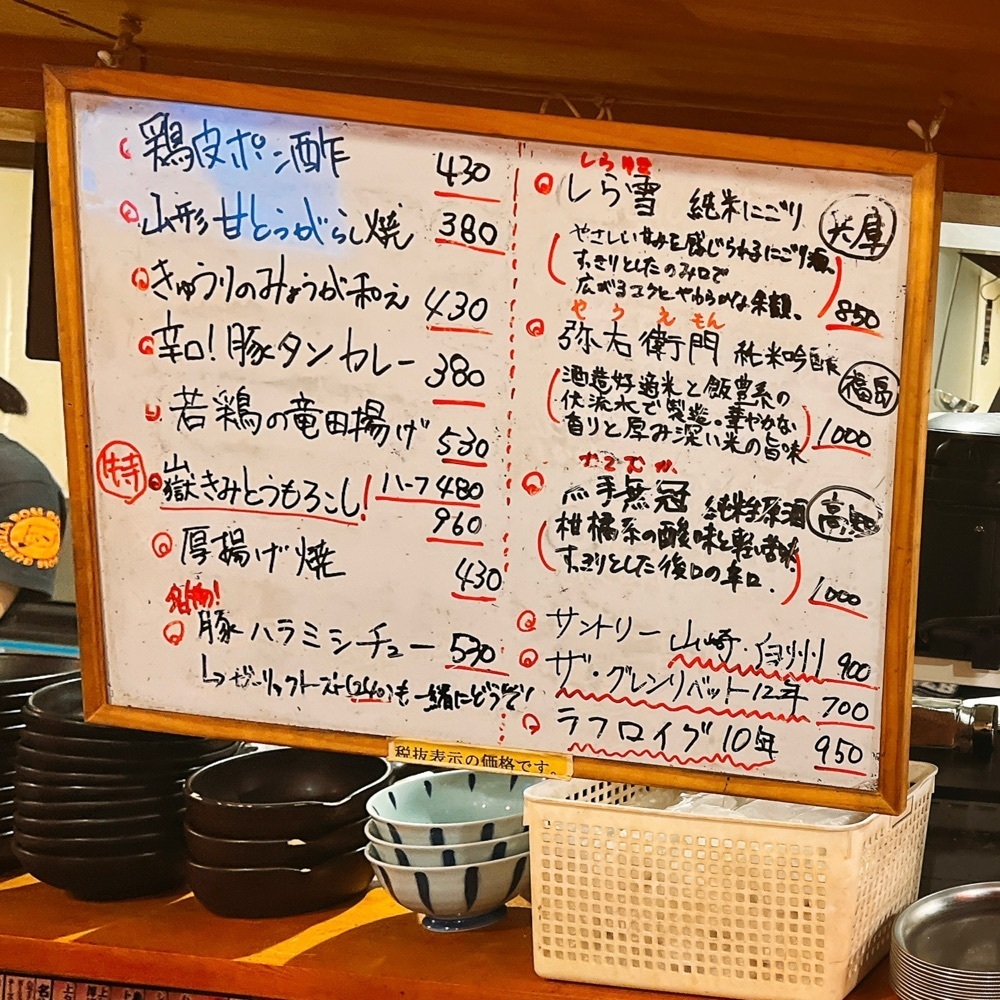 鶏皮ポン酢 430
山形 甘とうがらし焼 380
きゅうりのみょうが和え 430
辛口!豚タンカレー 380
若鶏の竜田揚げ 530
特 嶽きみとうもろこし! ハーフ 480
960
厚揚げ焼 430
名物!
豚ハラミシチュー 530
ガーリックトースト(240)も一緒にどうぞ!
しら雪 純米にごり 兵庫
やさしい甘みを感じられるにごり酒。
すっきりとしたのみ口で
広がるコクとやわらかな
850
やうえもん
弥右衛門 純米吟醸 福島
酒造好適米と飯豊系の
伏流水で製造。華やかな
香りと厚み深い米の旨味
1000
手無冠 純米生原酒 高知
柑橘系の酸味と軽い
すっきりとした後口の辛口。
1000
サントリー 山崎・白州 900
ザ・グレンリベット12年 700
ラフロイグ10年 950
税抜表示の価格です。